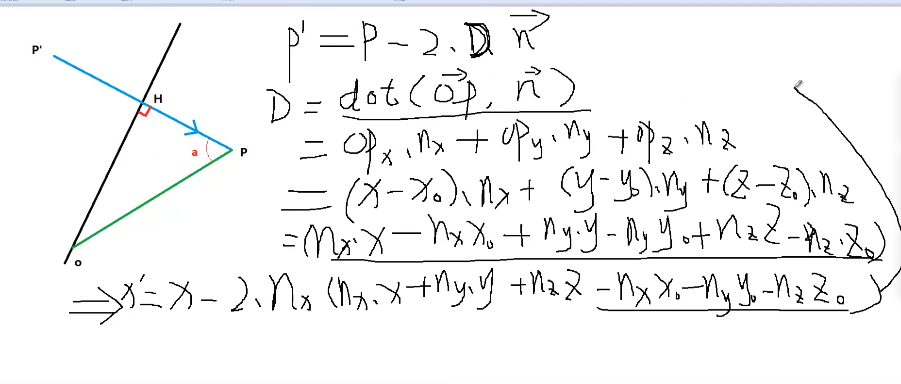 P'
H
a
P
o
p' = p - 2. D n⃗
D = dot(o⃗p⃗, n⃗)
= opₓ.nₓ + opᵧ.nᵧ + op_z.n_z
= (x-x₀).nₓ + (y-y₀).nᵧ + (z-z₀).n_z
= (nₓ.x - nₓx₀ + nᵧ.y - nᵧy₀ + n_z z - n_z.z₀)
⇒ x' = x - 2.nₓ(nₓ.x + nᵧ.y + n_z z - nₓx₀ - nᵧy₀ - n_z z₀)